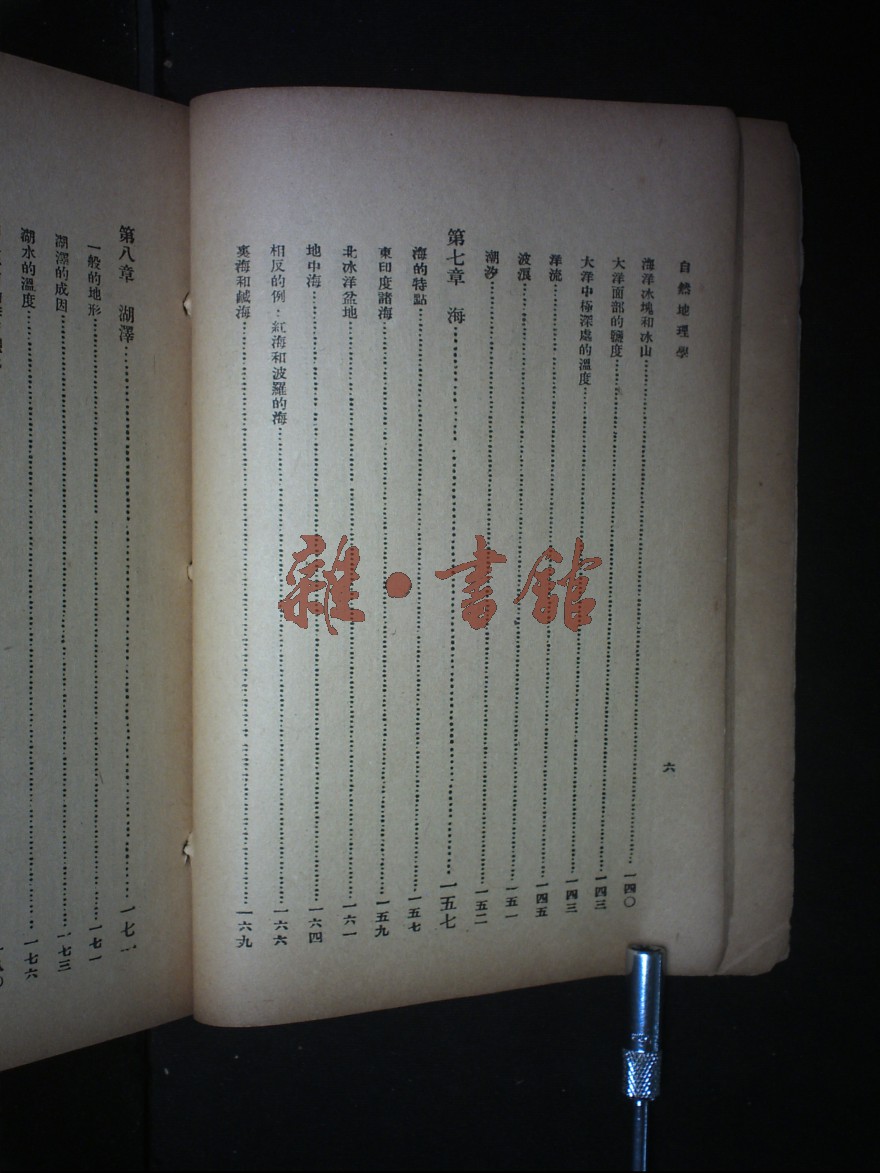 自然地理學
六
海洋冰塊和冰山……一四〇
大洋面部的鹽度……一四三
大洋中極深處的溫度……一四三
洋流……一四五
波浪……一五一
潮汐……一五二
第七章 海……一五七
海的特點……一五七
東印度諸海……一五九
北冰洋盆地……一六一
地中海……一六四
相反的例:紅海和波羅的海……一六六
裏海和鹹海……一六九
第八章 湖澤……一七一
一般的地形……一七一
湖澤的成因……一七三
湖水的溫度……一七六
雜·書館